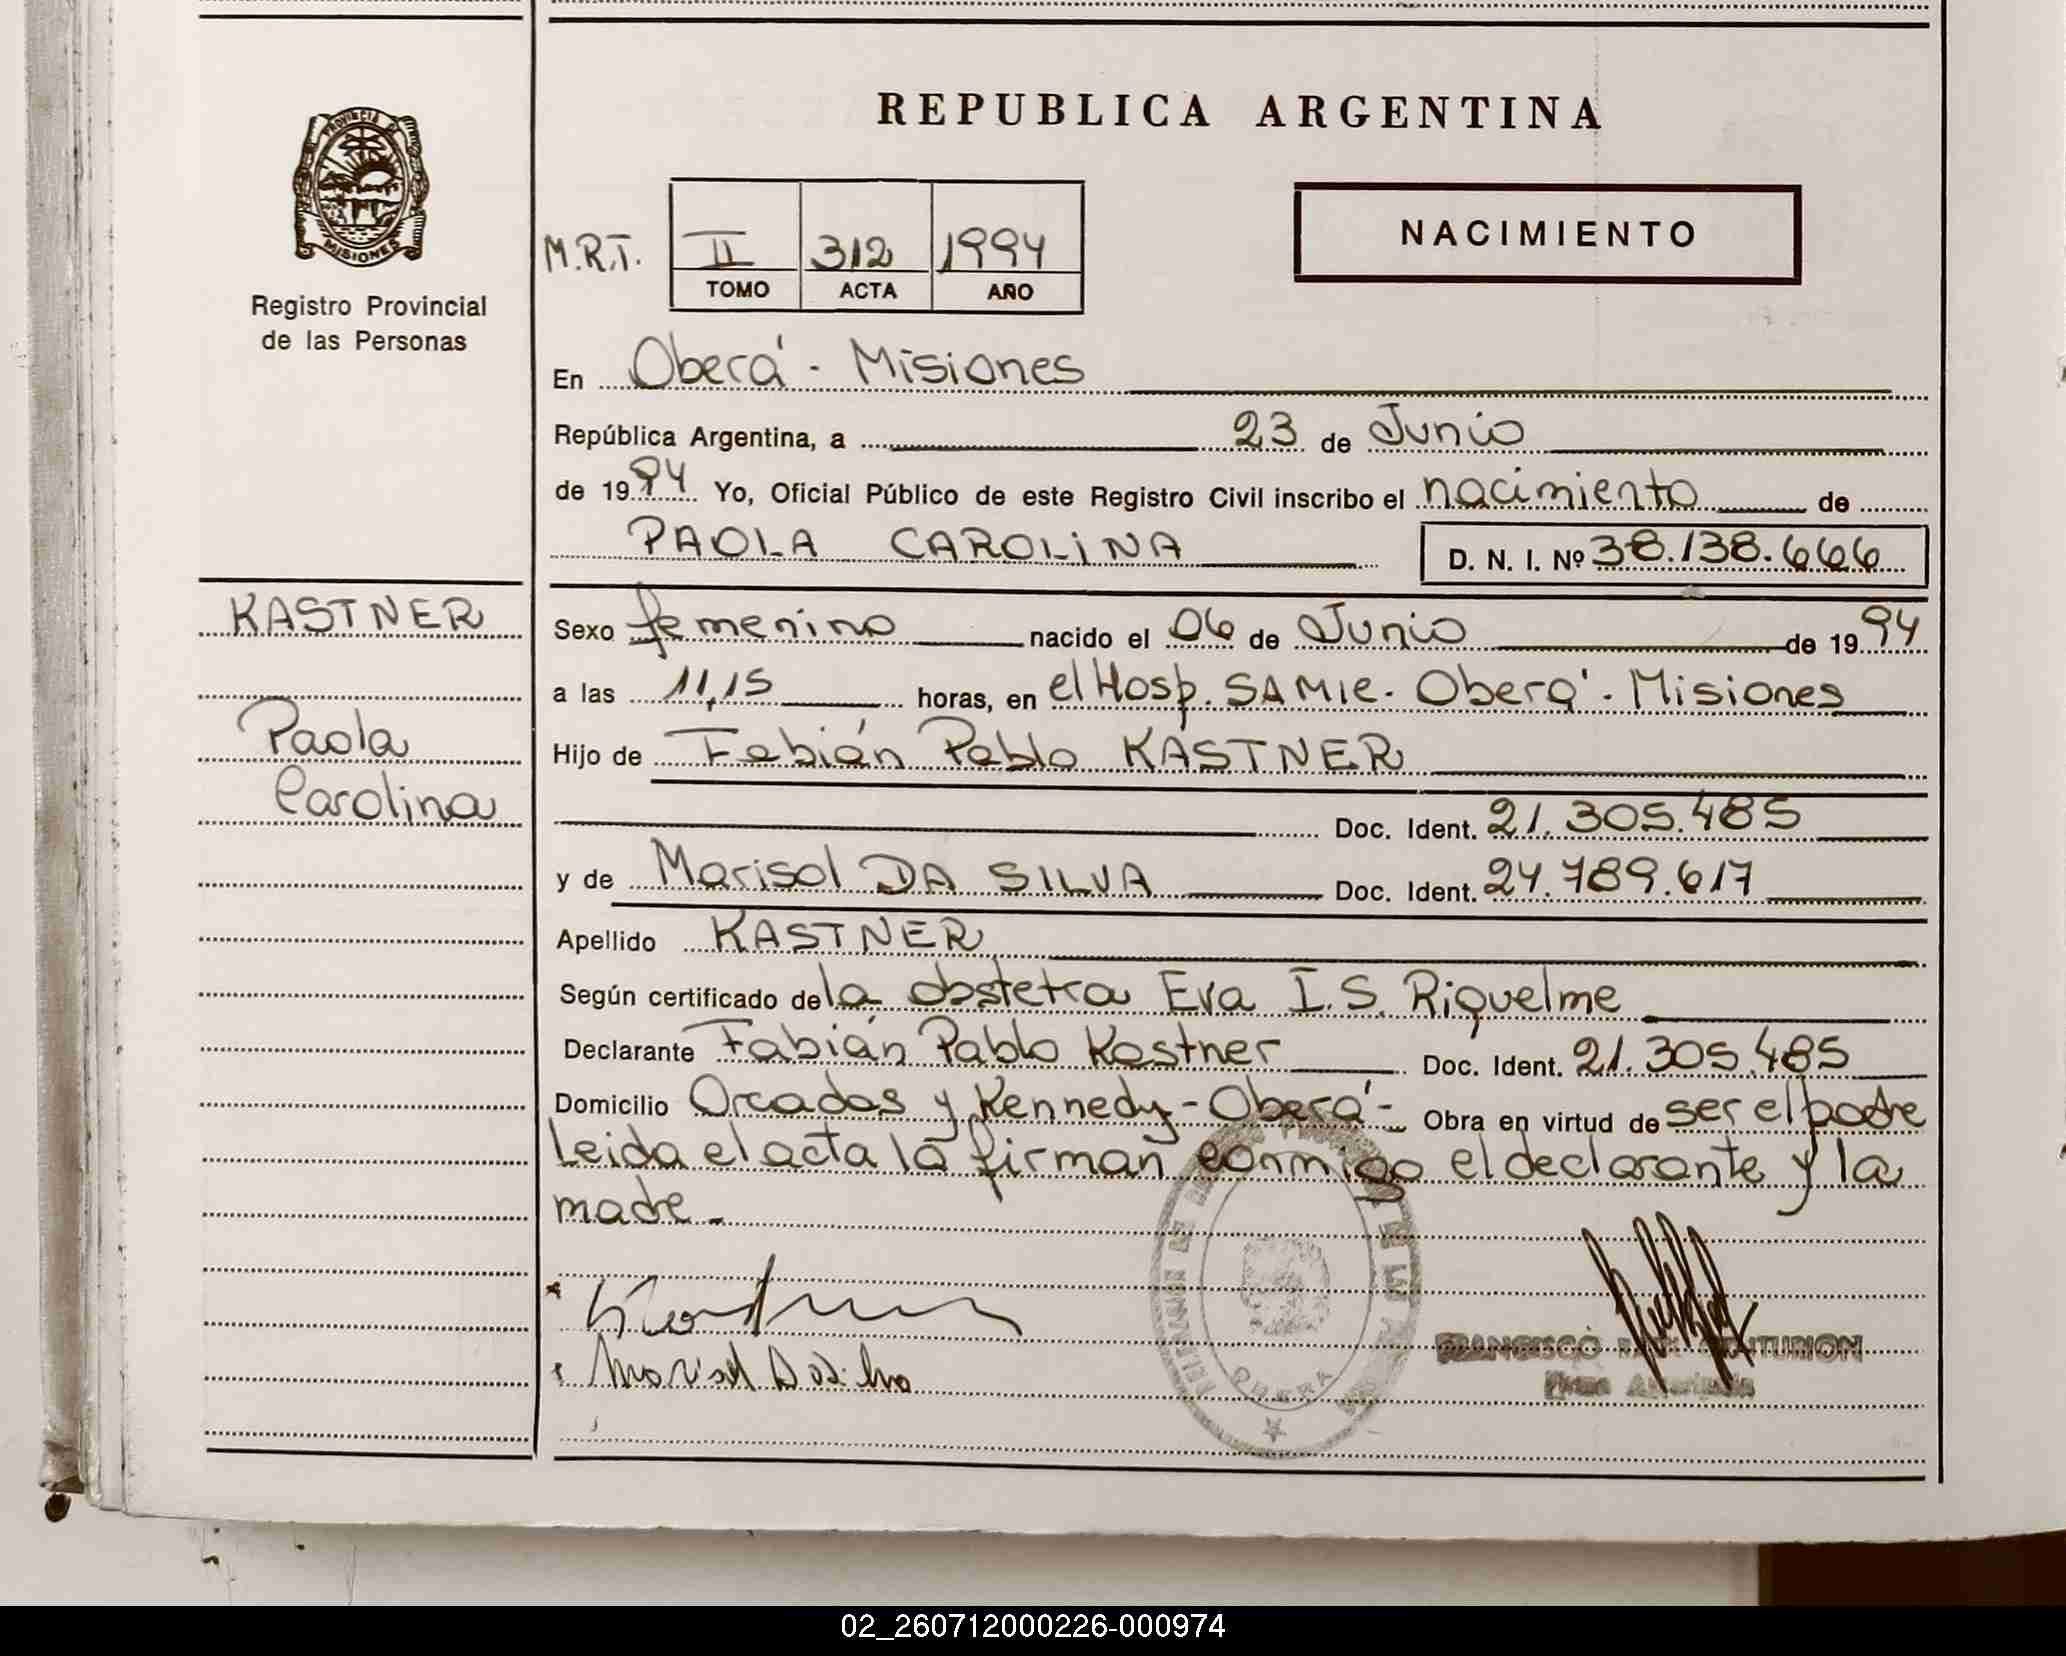 PROVINCIA DE
MISIONES
Registro Provincial
de las Personas
REPUBLICA ARGENTINA
NACIMIENTO
M.R.T. II 312 1994
TOMO ACTA AÑO
En Oberá - Misiones
República Argentina, a 23 de Junio
de 1994 Yo, Oficial Público de este Registro Civil inscribo el nacimiento de
PAOLA CAROLINA D. N. I. Nº 38.138.666
KASTNER
Paola
Carolina
Sexo femenino nacido el 06 de Junio de 1994
a las 11,15 horas, en el Hosp. SAMIC - Oberá - Misiones
Hijo de Fabián Pablo KASTNER
Doc. Ident. 21.305.485
y de Marisol DA SILVA Doc. Ident. 24.789.617
Apellido KASTNER
Según certificado de la obstetra Eva I.S. Riquelme
Declarante Fabián Pablo Kastner Doc. Ident. 21.305.485
Domicilio Orcadas y Kennedy - Oberá - Obra en virtud de ser el padre
Leida el acta la firman conmigo el declarante y la
madre -
Marisol Da Silva
OBERA
FRANCISCO CENTURION
Firma Autorizada
02_260712000226-000974